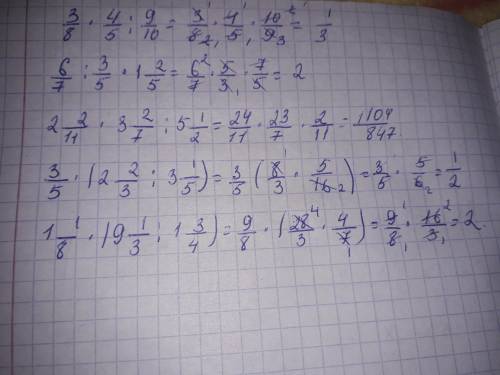 3/8 · 4/5 : 9/10 = 3/8 · 4/5 · 10/9 = 1/3
6/7 : 3/5 · 1 2/5 = 6/7 · 5/3 · 7/5 = 2
2 2/11 · 3 2/7 : 5 1/2 = 24/11 · 23/7 · 2/11 = 1104/847
3/5 · (2 2/3 : 3 1/5) = 3/5 (8/3 · 5/16) = 3/5 · 5/6 = 1/2
1 1/8 · (9 1/3 : 1 3/4) = 9/8 · (28/3 · 4/7) = 9/8 · 16/3 = 2